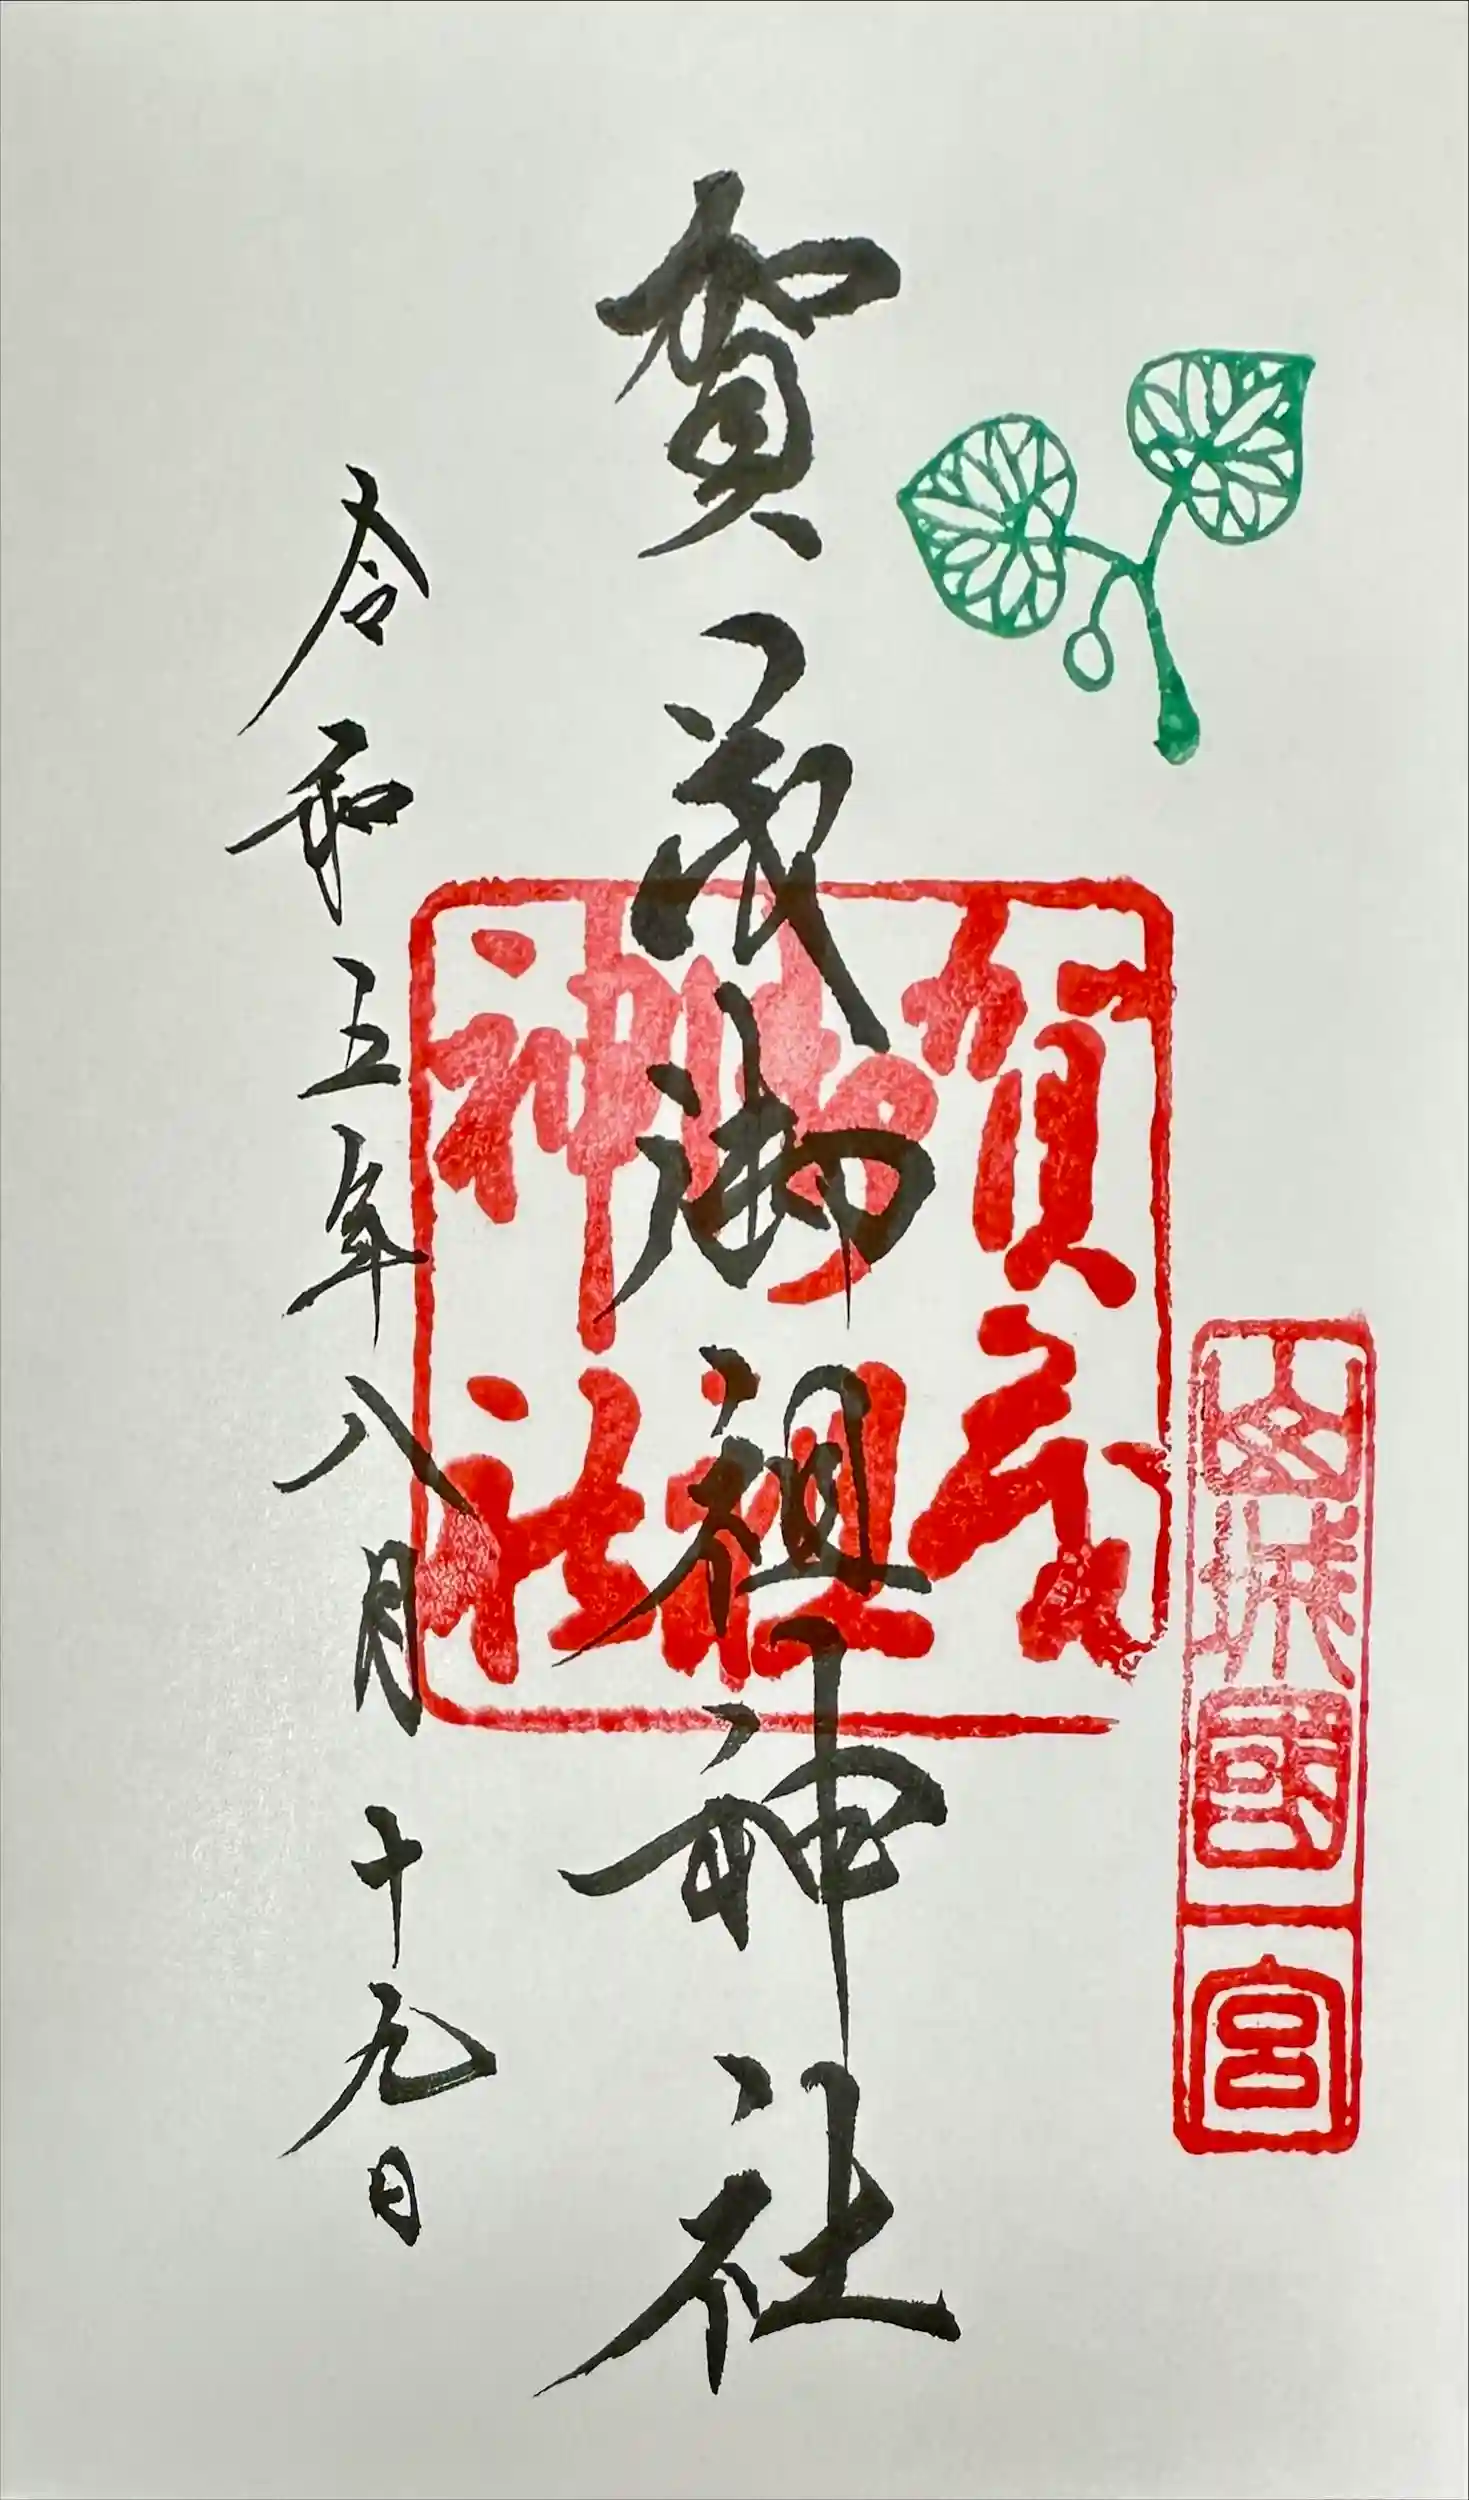 山城國一宮
賀茂御祖神社
賀茂
御祖
神社
令和五年八月十九日